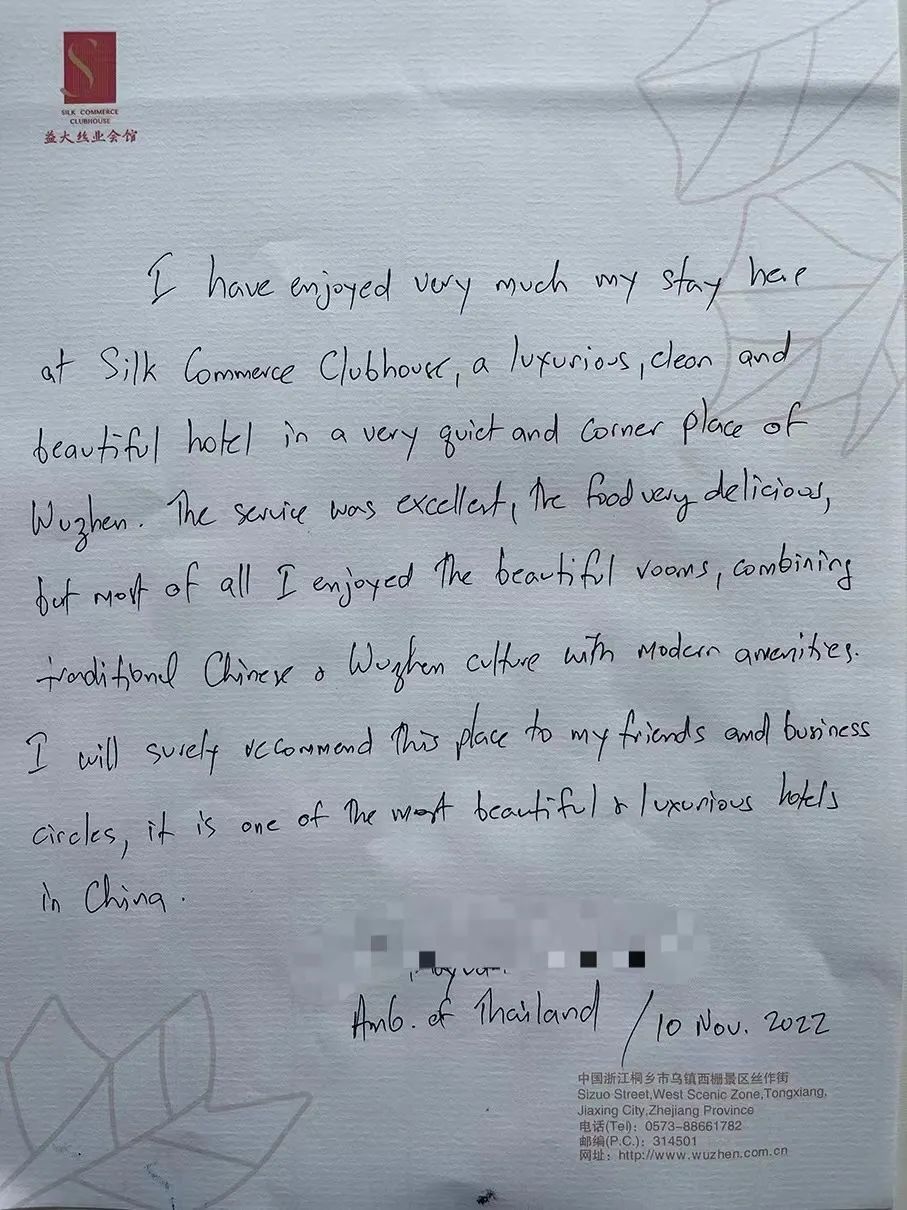 S
SILK COMMERCE
CLUBHOUSE
益大丝业会馆
I have enjoyed very much my stay here
at Silk Commerce Clubhouse, a luxurious, clean and
beautiful hotel in a very quiet and corner place of
Wuzhen. The service was excellent, the food very delicious,
but most of all I enjoyed the beautiful rooms, combining
traditional Chinese & Wuzhen culture with modern amenities.
I will surely recommend this place to my friends and business
circles, it is one of the most beautiful & luxurious hotels
in China.
Amb. of Thailand / 10 Nov. 2022
中国浙江桐乡市乌镇西栅景区丝作街
Sizuo Street,West Scenic Zone,Tongxiang,
Jiaxing City,Zhejiang Province
电话(Tel)：0573-88661782
邮编(P.C.)：314501
网址：http://www.wuzhen.com.cn